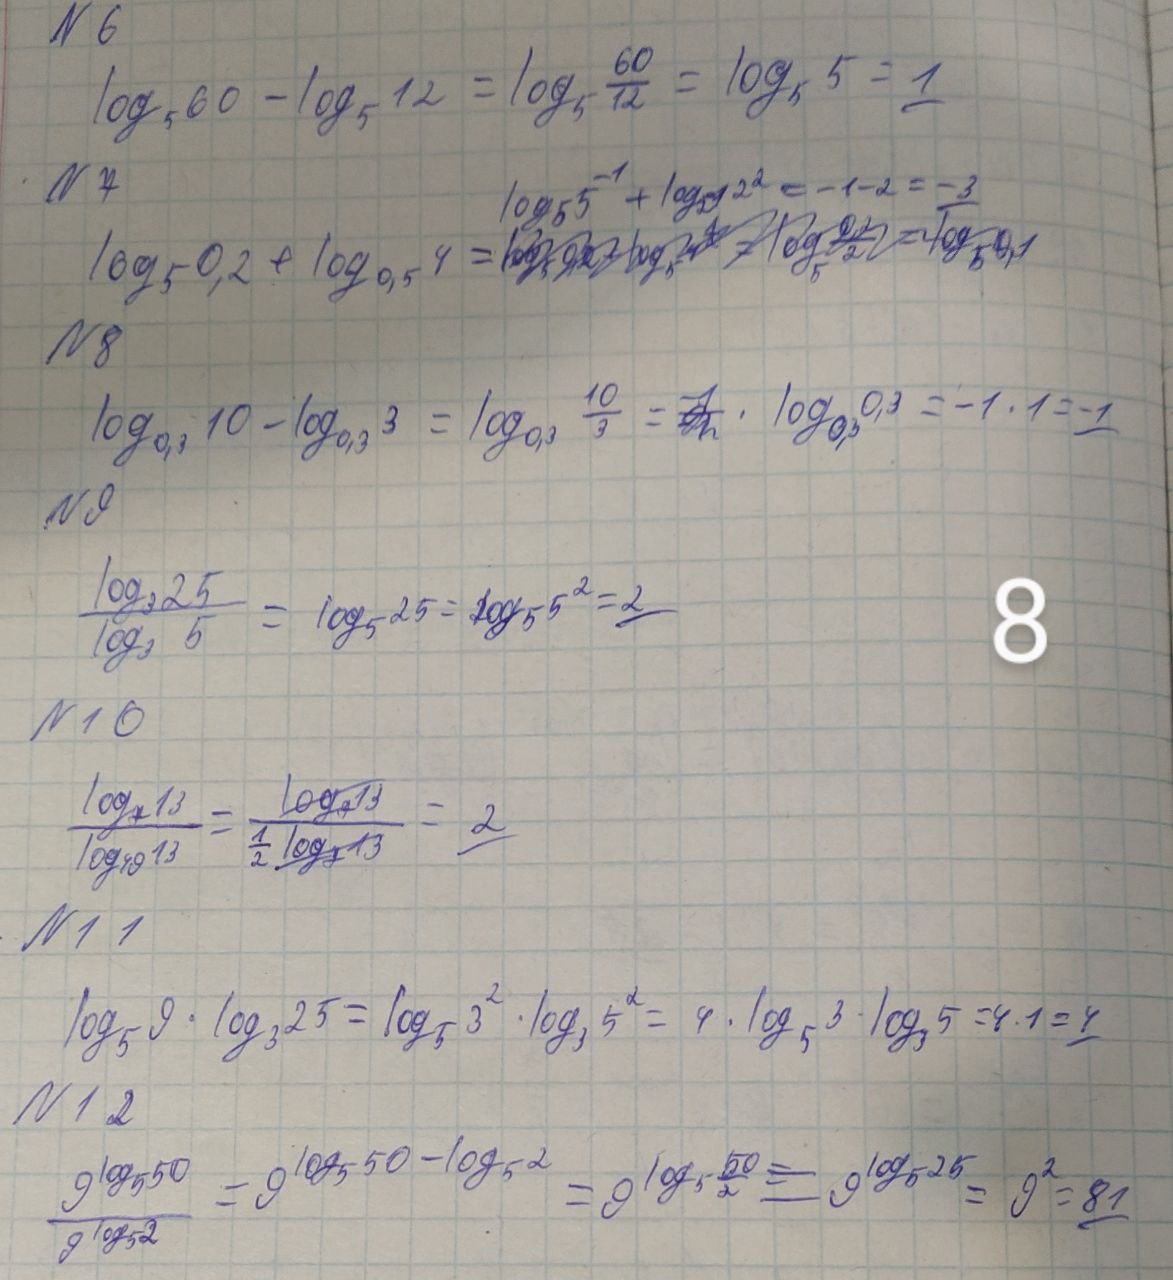 N 6
log₅60 - log₅12 = log₅ 60/12 = log₅ 5 = 1
N 7
log₅5⁻¹ + log₂⁻¹ 2² = -1-2 = -3
log₅0,2 + log₀,₅4 =
N 8
log₀,₃10 - log₀,₃3 = log₀,₃ 10/3 = -1 · log₀,₃0,3 = -1·1 = -1
N 9
log₃25/log₃ 5 = log₅25 = log₅5² = 2
8
N 10
log₇13/log₄₉13 = log₇13/(1/2 log₇13) = 2
N 11
log₅9 · log₃25 = log₅3² · log₃5² = 4 · log₅3 · log₃5 = 4·1 = 4
N 12
9^log₅50/9^log₅2 = 9^log₅50 - log₅2 = 9^log₅ 50/2 = 9^log₅25 = 9² = 81